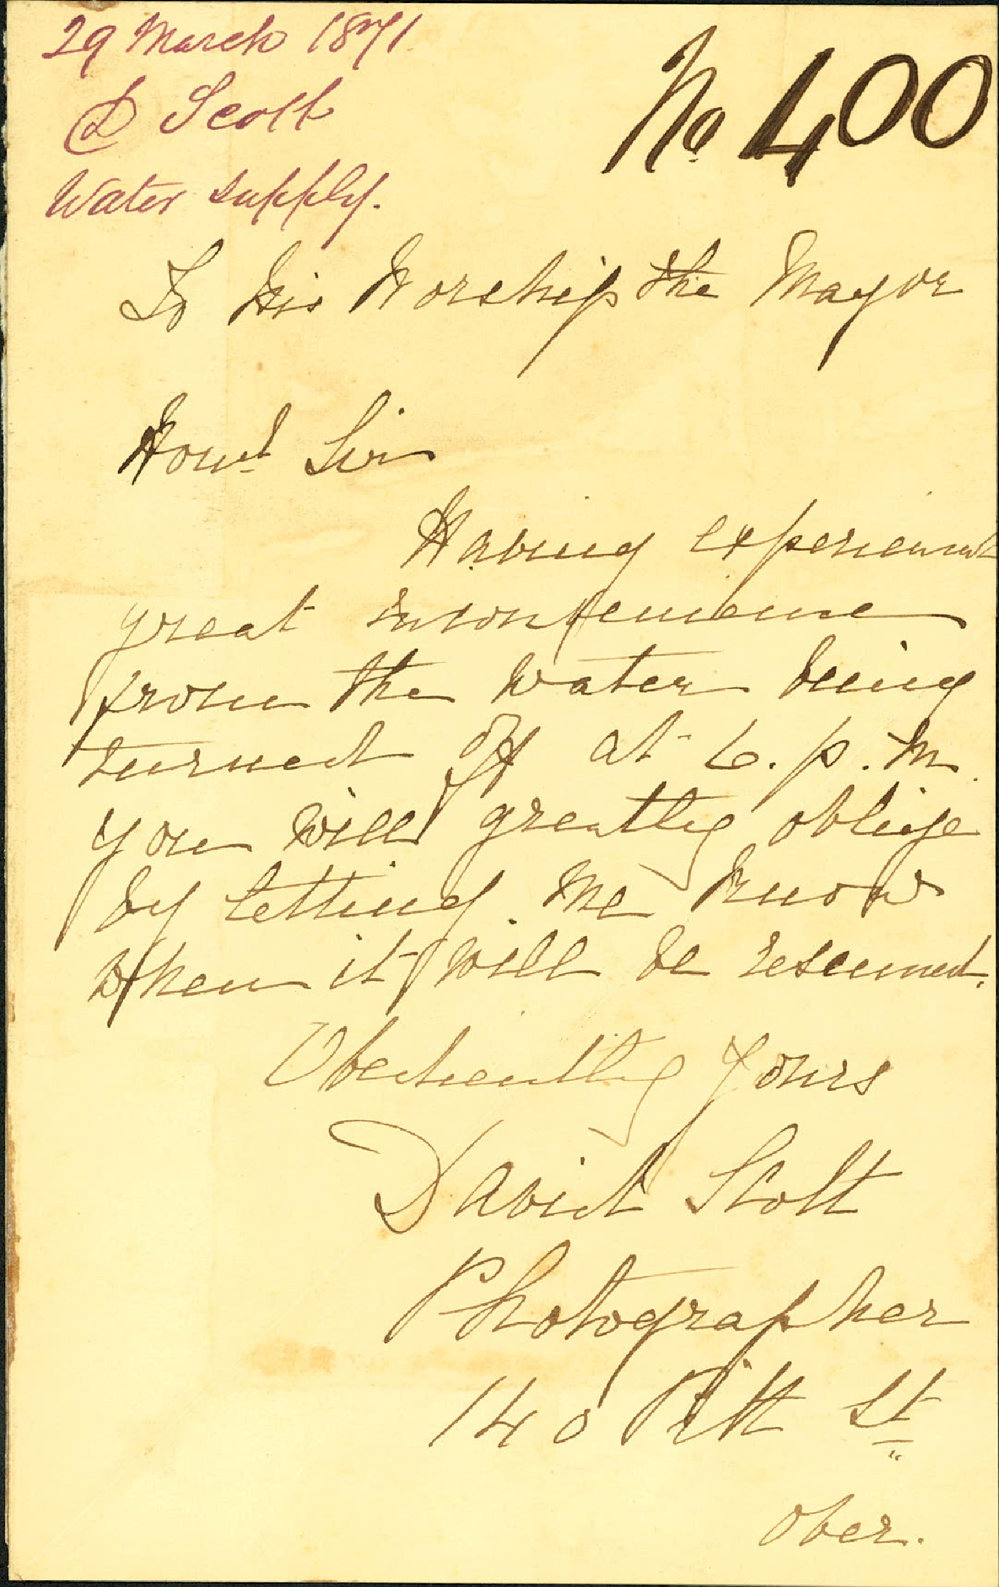 29 March 1871
D Scott
Water supply.
No 400
To His Worship the Mayor
Hond Sir
Having experienced
great inconvenience
from the water being
turned off at 6. p. m.
you will greatly oblige
by letting me know
when it will be resumed.
Obediently Yours
David Scott
Photographer
140 Pitt St
Over.